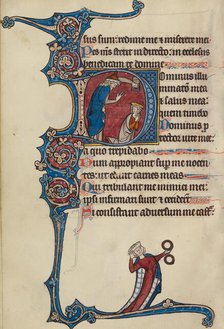 sus sum: redime me et miserere mei
Pes meus stetit in directo: in ecclesiis
benedicam te domine
Dominus illu
minatio mea
et salus mea
quem timebo
Dominus p
rector vite mee
a quo trepidabo
Dum appropiant sup me nocen
tes: ut edant carnes meas
Qui tribulant me inimici mei:
ipsi infirmati sunt et ceciderunt
Si consistant adversum me cast